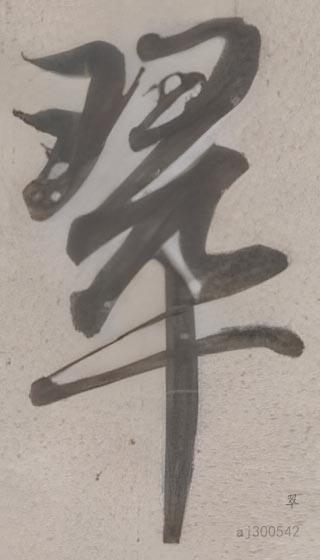 翠
翠
aj300542